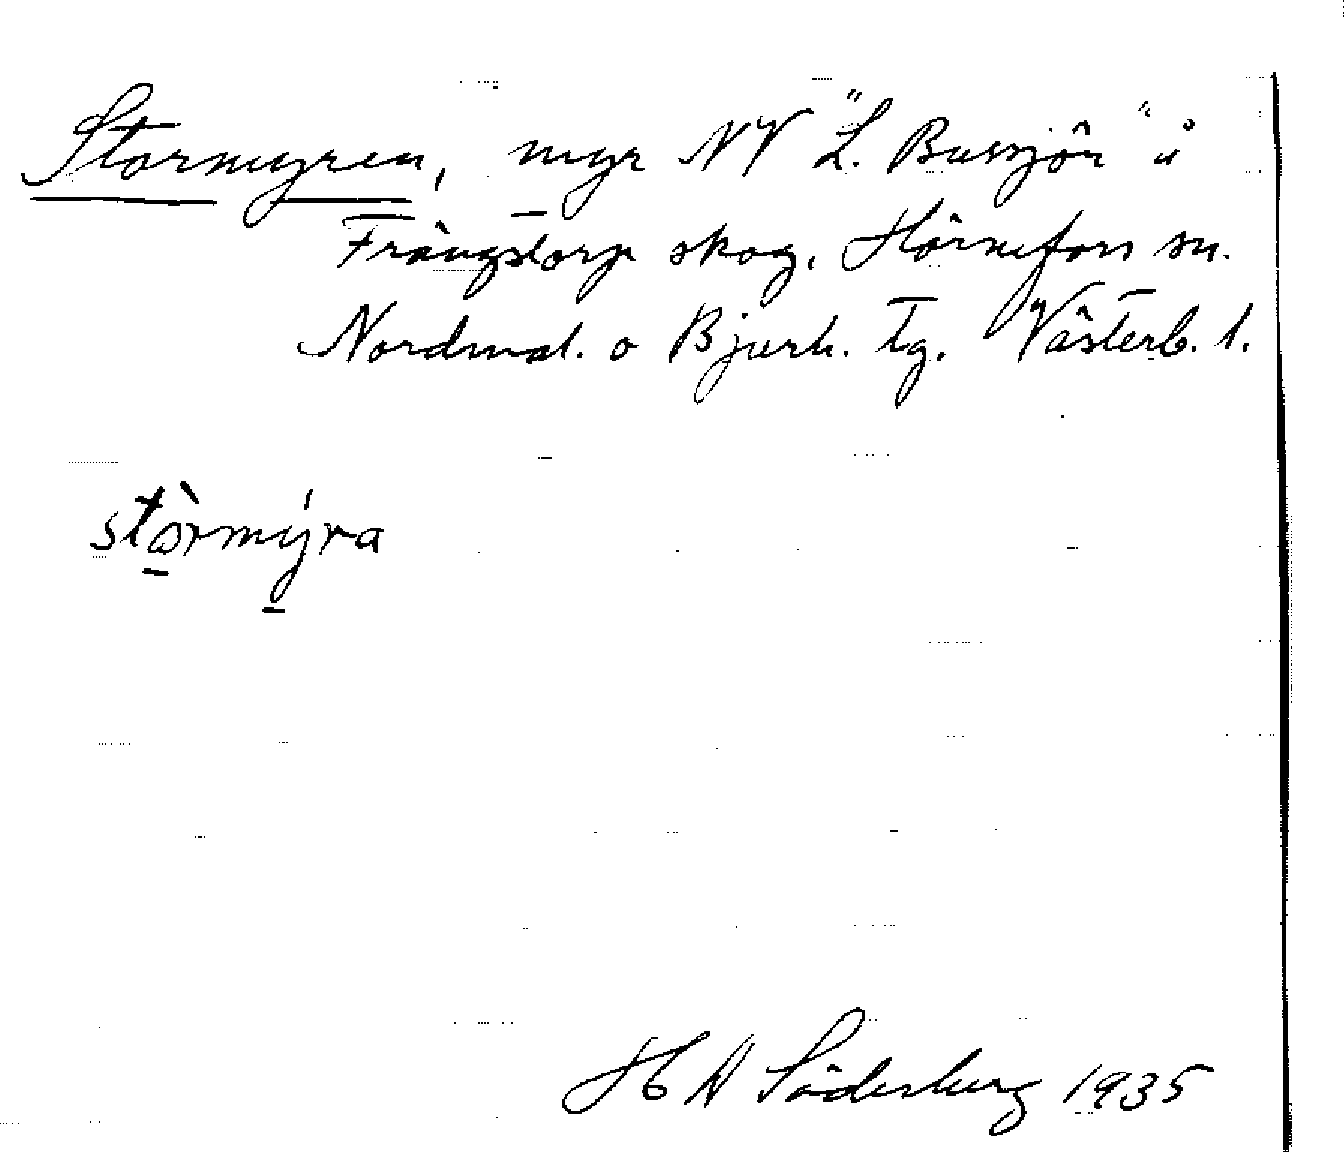 Stormyren, myr NV "L. Bussjön" å
Frängstorp skog, Hörnefors sn.
Nordmal. o Bjurh. tg. Västerb. l.
stòrmýra
H A Söderberg 1935